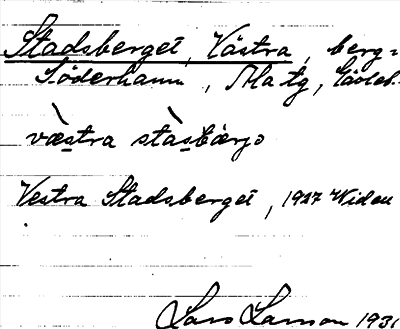 Stadsberget, Västra, berg=
Söderhamn, Ala tg, Gävleb.
væstra stàsbærjə
Vestra Stadsberget, 1937 Widen
Lars Larson 1931